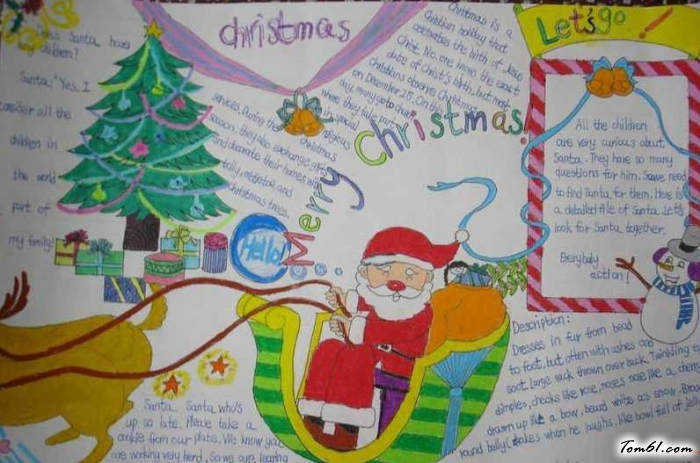 Christmas
Let's go!
Does Santa have
children?
Santa: "Yes, I
consider all the
children in
the world
part of
my family!
Christmas is a
Christian holiday that
celebrates the birth of Jesus
Christ. No one knows the exact
date of Christ's birth, but most
Christians observe Christmas
on December 25. On this
day, many go to church
where they take part
in special
religious
services. During the Christmas
season, they also exchange gifts
and decorate their homes with
holly, mistletoe, and
Christmas trees.
Merry Christmas!
Hello!
All the children
are very curious about
Santa. They have so many
questions for him. Some need
to find Santa for them. Here is
a detailed file of Santa. Let's
look for Santa together.
Everybaby
action!
Description:
Dresses in fur from head
to foot, but often with ashes and
soot. Large sack thrown over back. Twinkling
dimples, cheeks like rose, noses nose like a
drawn up like a bow, beard white as snow.
round belly (shakes when he laughs, like bowl full of
Santa Santa, who's
up so late. Please take a
cookie from our plate. We know you
are working very hard, So we are leaving
Tom61.com